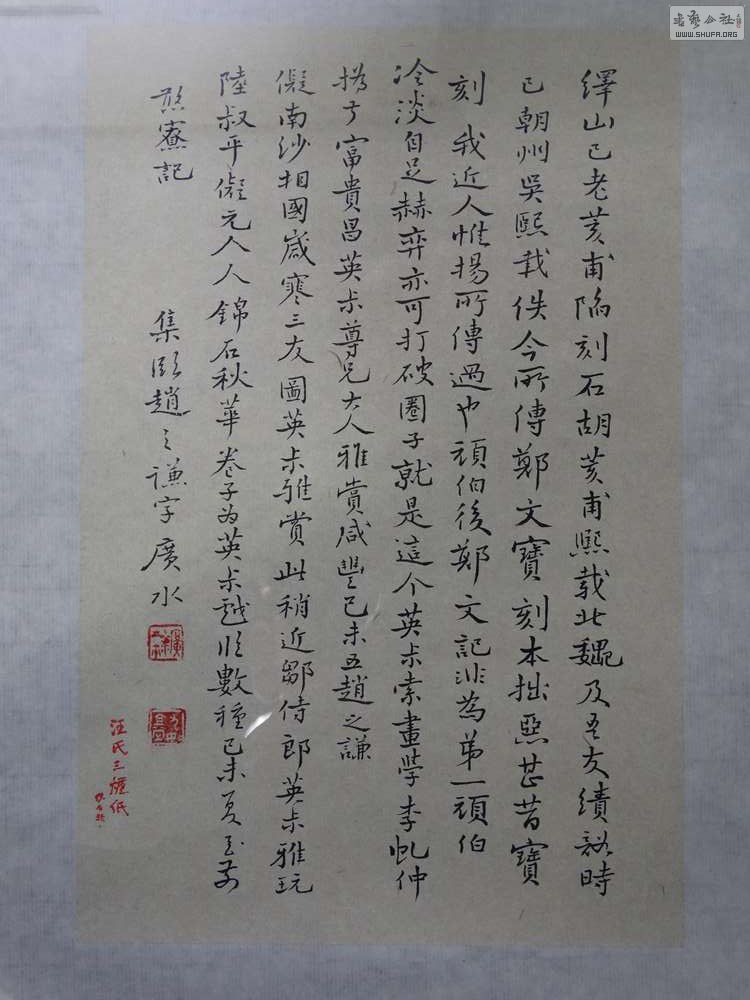 繹山已老荄甫陷刻石胡荄甫熙载北魏及吾友績谿時
已朝州吳熙载佚今所傳鄭文寶刻本拙惡甚昔寶
刻我近人惟揚所傳過也頑伯後鄭文記非為第一頑伯
冷淡自足赫弈亦可打破圈子就是這个英尗索畫學李虬仲
撝于富貴昌英尗尊兄大人雅賞咸豐已未五趙之謙
儗南沙相國歲寒三友圖英尗雅賞此稍近鄒侍郎英尗雅玩
陸叔平儗元人人錦石秋華卷子为英尗數種已未夏至前
寮記
集趙之謙字廣水
汪氏三礦紙
書藝公社
WWW.SHUFA.ORG